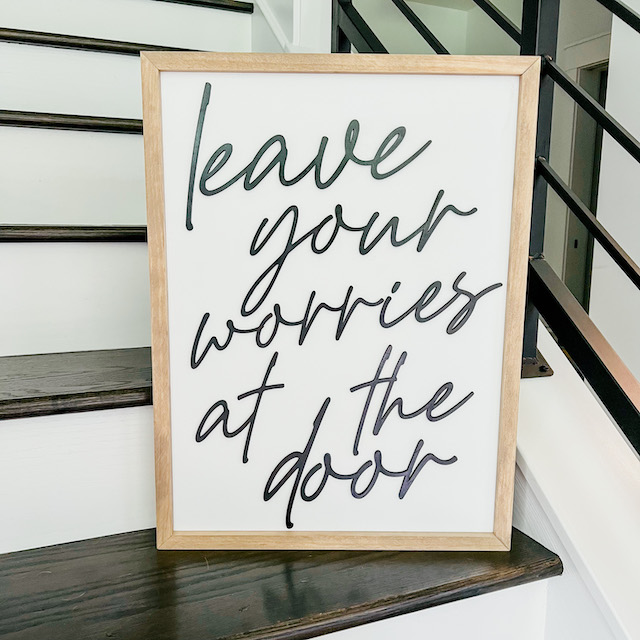 leave
your
worries
at the
door